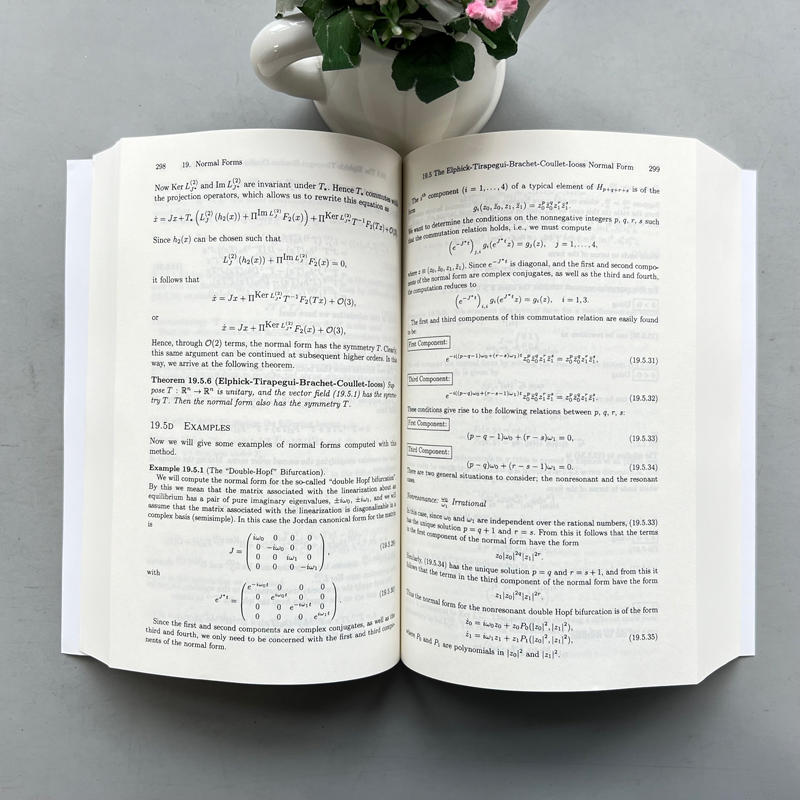 298 19. Normal Forms
Now Ker L_{J*}^{(2)} and Im L_{J*}^{(2)} are invariant under T_*. Hence T_* commutes with
the projection operators, which allows us to rewrite this equation as
ẋ = Jx + T_* (L_J^{(2)}(h₂(x)) + Π^{Im L_{J*}^{(2)}} F₂(x)) + Π^{Ker L_{J*}^{(2)}} T^{-1}F₂(Tx) + O(3)
Since h₂(x) can be chosen such that
L_J^{(2)}(h₂(x)) + Π^{Im L_J^{(2)}} F₂(x) = 0,
it follows that
ẋ = Jx + Π^{Ker L_{J*}^{(2)}} T^{-1}F₂(Tx) + O(3),
or
ẋ = Jx + Π^{Ker L_{J*}^{(2)}} F₂(x) + O(3),
Hence, through O(2) terms, the normal form has the symmetry T. Clearly
this same argument can be continued at subsequent higher orders. In this
way, we arrive at the following theorem.
Theorem 19.5.6 (Elphick-Tirapegui-Brachet-Coullet-Iooss) Sup
pose T : ℝⁿ → ℝⁿ is unitary, and the vector field (19.5.1) has the symme
try T. Then the normal form also has the symmetry T.
19.5D EXAMPLES
Now we will give some examples of normal forms computed with this
method.
Example 19.5.1 (The "Double-Hopf" Bifurcation).
We will compute the normal form for the so-called "double Hopf bifurcation"
By this we mean that the matrix associated with the linearization about an
equilibrium has a pair of pure imaginary eigenvalues, ±iω₀, ±iω₁, and we will
assume that the matrix associated with the linearization is diagonalizable in a
complex basis (semisimple). In this case the Jordan canonical form for the matrix
is
J = ( iω₀ 0 0 0
0 −iω₀ 0 0
0 0 iω₁ 0
0 0 0 −iω₁ ), (19.5.29)
with
e^{J*t} = ( e^{−iω₀t} 0 0 0
0 e^{iω₀t} 0 0
0 0 e^{−iω₁t} 0
0 0 0 e^{iω₁t} ). (19.5.30)
Since the first and second components are complex conjugates, as well as the
third and fourth, we only need to be concerned with the first and third compo-
nents of the normal form.
19.5 The Elphick-Tirapegui-Brachet-Coullet-Iooss Normal Form 299
The iᵗʰ component (i = 1, . . . , 4) of a typical element of H_{p+q+r+s} is of the
form
g_i(z₀, z̄₀, z₁, z̄₁) = z₀^p z̄₀^q z₁^r z̄₁^s.
We want to determine the conditions on the nonnegative integers p, q, r, s such
that the commutation relation holds, i.e., we must compute
(e^{−J*t})_{j,i} g_i(e^{J*t}z) = g_j(z), j = 1, . . . , 4,
where z ≡ (z₀, z̄₀, z₁, z̄₁). Since e^{−J*t} is diagonal, and the first and second compo-
nents of the normal form are complex conjugates, as well as the third and fourth,
the computation reduces to
(e^{−J*t})_{i,i} g_i(e^{J*t}z) = g_i(z), i = 1, 3.
The first and third components of this commutation relation are easily found
to be:
First Component:
e^{−i((p−q−1)ω₀+(r−s)ω₁)t} z₀^p z̄₀^q z₁^r z̄₁^s = z₀^p z̄₀^q z₁^r z̄₁^s, (19.5.31)
Third Component:
e^{−i((p−q)ω₀+(r−s−1)ω₁)t} z₀^p z̄₀^q z₁^r z̄₁^s = z₀^p z̄₀^q z₁^r z̄₁^s. (19.5.32)
These conditions give rise to the following relations between p, q, r, s:
First Component:
(p − q − 1)ω₀ + (r − s)ω₁ = 0, (19.5.33)
Third Component:
(p − q)ω₀ + (r − s − 1)ω₁ = 0. (19.5.34)
There are two general situations to consider; the nonresonant and the resonant
cases.
Nonresonance: ω₀/ω₁ Irrational
In this case, since ω₀ and ω₁ are independent over the rational numbers, (19.5.33)
has the unique solution p = q + 1 and r = s. From this it follows that the terms
in the first component of the normal form have the form
z₀|z₀|^{2q}|z₁|^{2r}.
Similarly, (19.5.34) has the unique solution p = q and r = s + 1, and from this it
follows that the terms in the third component of the normal form have the form
z₁|z₀|^{2q}|z₁|^{2r}.
Thus the normal form for the nonresonant double Hopf bifurcation is of the form
ż₀ = iω₀z₀ + z₀P₀(|z₀|², |z₁|²),
ż₁ = iω₁z₁ + z₁P₁(|z₀|², |z₁|²), (19.5.35)
where P₀ and P₁ are polynomials in |z₀|² and |z₁|².